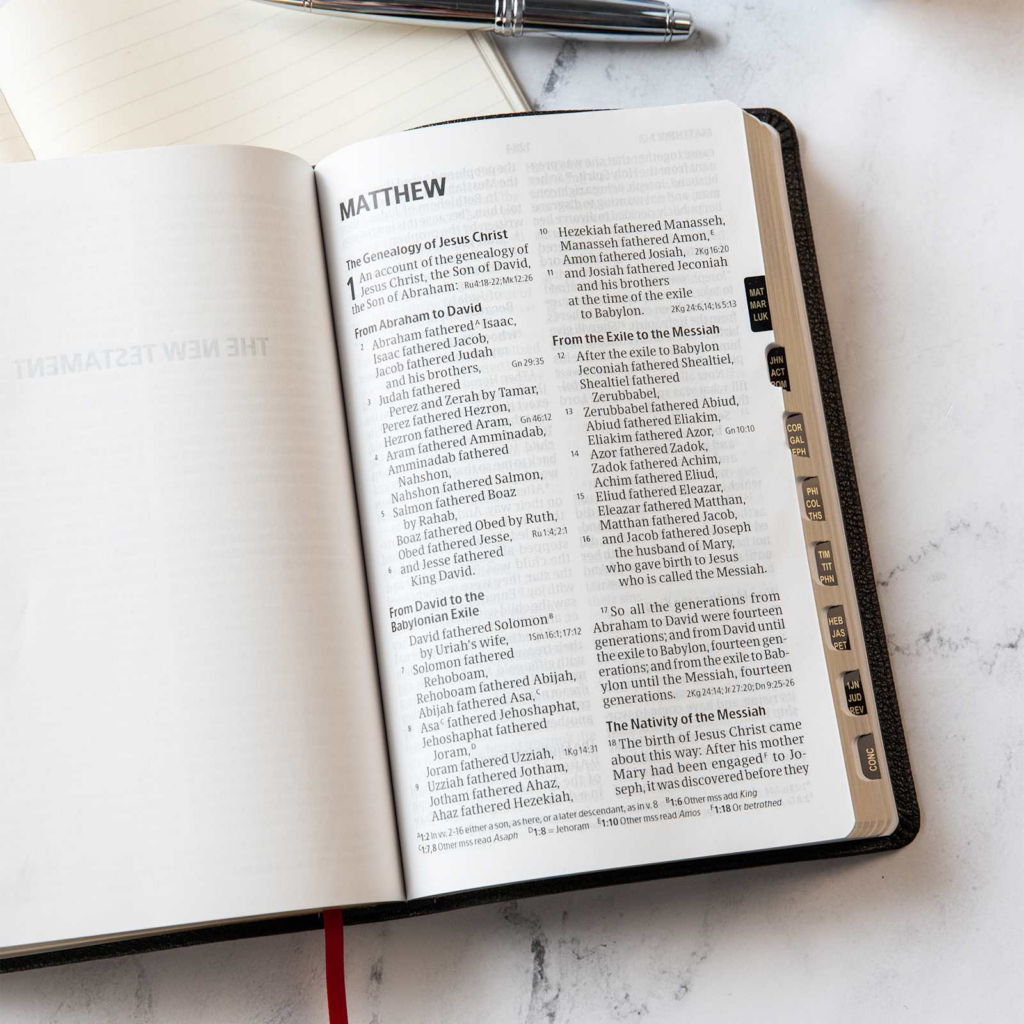 THE NEW TESTAMENT
MATTHEW
The Genealogy of Jesus Christ
1 An account of the genealogy of
Jesus Christ, the Son of David,
the Son of Abraham: Ru4:18-22; Mk12:26
From Abraham to David
2 Abraham fathered^A Isaac,
Isaac fathered Jacob,
Jacob fathered Judah
and his brothers, Gn 29:35
3 Judah fathered
Perez and Zerah by Tamar,
Perez fathered Hezron,
Hezron fathered Aram, Gn 46:12
4 Aram fathered Amminadab,
Amminadab fathered
Nahshon,
Nahshon fathered Salmon,
5 Salmon fathered Boaz
by Rahab,
Boaz fathered Obed by Ruth,
Obed fathered Jesse, Ru 1:4; 2:1
6 and Jesse fathered
King David.
From David to the
Babylonian Exile
David fathered Solomon^B
by Uriah's wife, 1Sm 16:1; 17:12
7 Solomon fathered
Rehoboam,
Rehoboam fathered Abijah,
Abijah fathered Asa,^C
8 Asa^C fathered Jehoshaphat,
Jehoshaphat fathered
Joram,^D
Joram fathered Uzziah, 1Kg 14:31
9 Uzziah fathered Jotham,
Jotham fathered Ahaz,
Ahaz fathered Hezekiah,
10 Hezekiah fathered Manasseh,
Manasseh fathered Amon,^E
Amon fathered Josiah, 2Kg 16:20
11 and Josiah fathered Jeconiah
and his brothers
at the time of the exile
to Babylon. 2Kg 24:6,14; Is 5:13
From the Exile to the Messiah
12 After the exile to Babylon
Jeconiah fathered Shealtiel,
Shealtiel fathered
Zerubbabel,
13 Zerubbabel fathered Abiud,
Abiud fathered Eliakim,
Eliakim fathered Azor, Gn 10:10
14 Azor fathered Zadok,
Zadok fathered Achim,
Achim fathered Eliud,
15 Eliud fathered Eleazar,
Eleazar fathered Matthan,
Matthan fathered Jacob,
16 and Jacob fathered Joseph
the husband of Mary,
who gave birth to Jesus
who is called the Messiah.
17 So all the generations from
Abraham to David were fourteen
generations; and from David until
the exile to Babylon, fourteen gen-
erations; and from the exile to Bab-
ylon until the Messiah, fourteen
generations. 2Kg 24:14; Jr 27:20; Dn 9:25-26
The Nativity of the Messiah
18 The birth of Jesus Christ came
about this way: After his mother
Mary had been engaged^F to Jo-
seph, it was discovered before they
^A1:2 In vv. 2-16 either a son, as here, or a later descendant, as in v. 8 ^B1:6 Other mss add King
^C1:7,8 Other mss read Asaph ^D1:8 = Jehoram ^E1:10 Other mss read Amos ^F1:18 Or betrothed
MAT
MAR
LUK
JHN
ACT
ROM
COR
GAL
EPH
PHI
COL
THS
TIM
TIT
PHN
HEB
JAS
PET
1JN
JUD
REV
CONC